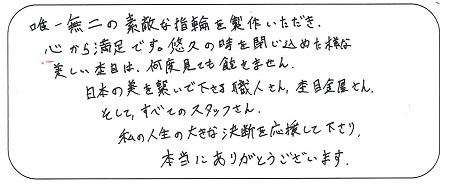 唯一無二の素敵な指輪を製作いただき、
心から満足です。悠久の時を閉じ込めた様な
美しい杢目は、何度見ても飽きません。
日本の美を繋いで下さる職人さん、杢目金屋さん、
そして、すべてのスタッフさん。
私の人生の大きな決断を応援して下さり、
本当にありがとうございます。